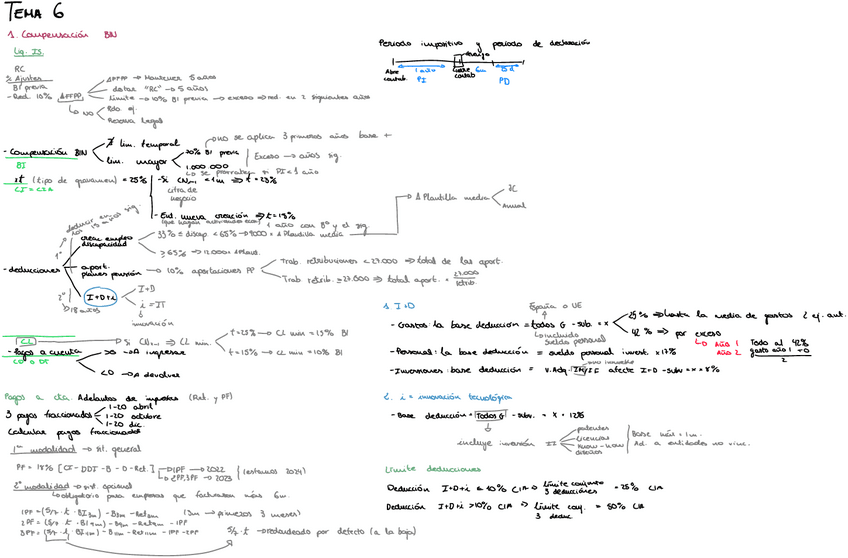 TEMA 6
1. Compensación BIN
Liq. IS.
RC
± Ajustes
BI previa
- Red. 10% ΔFFPP
ΔFFPP → Mantener 5 años
dotar "RC" → 5 años
límite → 10% BI previa → exceso → red. en 2 siguientes años
NO
Rdo. ej.
Reserva legal
- Compensación BIN
∄ lím. temporal
lím. mayor
no se aplica 3 primeros años base +
70% BI previa
1.000.000
Exceso → años sig.
se prorratea si PI < 1 año
BI
xt (tipo de gravamen) = 25%
CI = CIA
- Si CN < 1m ⇒ t = 23%
cifra de negocio
- Ent. nueva creación ⇒ t = 15%
(que hagan actividades econ.)
1 año con Bº y el sig.
- deducciones
deducir en los 15 años sig.
1º
crear empleo discapacidad
33% ≤ discap. < 65% → 9000 × Δ Plantilla media
≥ 65% → 12.000 × Δ Plant.
Δ Plantilla media
JC
anual
aport. planes pensión
→ 10% aportaciones PP
Trab. retribuciones < 27.000 ⇒ total de las aport.
Trab. retrib. ≥ 27.000 ⇒ total aport. × 27.000 / retrib.
2º
18 años
I+D+i
I+D
i = IT
innovación
CL
Si CN ⇒ CL mín.
t = 25% → CL mín = 15% BI
t = 15% → CL mín = 10% BI
- Pagos a cuenta
CD o DI
>0 → A ingresar
<0 → A devolver
Pagos a cta. Adelantos de impuestos (Ret. y PF)
3 pagos fraccionados
1-20 abril
1-20 octubre
1-20 dic.
Calcular pagos fraccionados
1ª modalidad → sit. general
PF = 18% [CI - DDI - B - D - Ret.]
1PF → 2022
2PF, 3PF → 2023
(estamos 2024)
2ª modalidad → sit. opcional
obligatorio para empresas que facturaron más 6m.
1PF = (5/7 · t · BI3m) - B3m - Ret3m
(3m → primeros 3 meses)
2PF = (5/7 · t · BI9m) - B9m - Ret9m - 1PF
3PF = (5/7 · t · BI11m) - B11m - Ret11m - 1PF - 2PF
5/7 · t → redondeado por defecto (a la baja)
Periodo impositivo y periodo de declaración
Abre contab.
1 año
PI
cierre contab.
6m
25 d
PD
1. I+D
España o UE
- Gastos: la base deducción = todos G - sub. = x
incluido sueldo personal
25% ⇒ hasta la media de gastos 2 ej. ant.
42% ⇒ por exceso
Año 1 Todo al 42%
Año 2 gasto año 1 + 0 / 2
- Personal: la base deducción = sueldo personal invest. × 17%
- Inversiones: base deducción = V. Adq. IM/II afecte I+D - subv = x × 8%
2. i = innovación tecnológica
- Base deducción = Todos G - subv. = x · 12%
incluye inversión II
patentes
licencias
know-how
diseños
Base máx = 1m.
Ad. a entidades no vinc.
Límite deducciones
Deducción I+D+i ≤ 10% CIA ⇒ límite conjunto 3 deducciones = 25% CIA
Deducción I+D+i > 10% CIA ⇒ límite conj. 3 deduc = 50% CIA